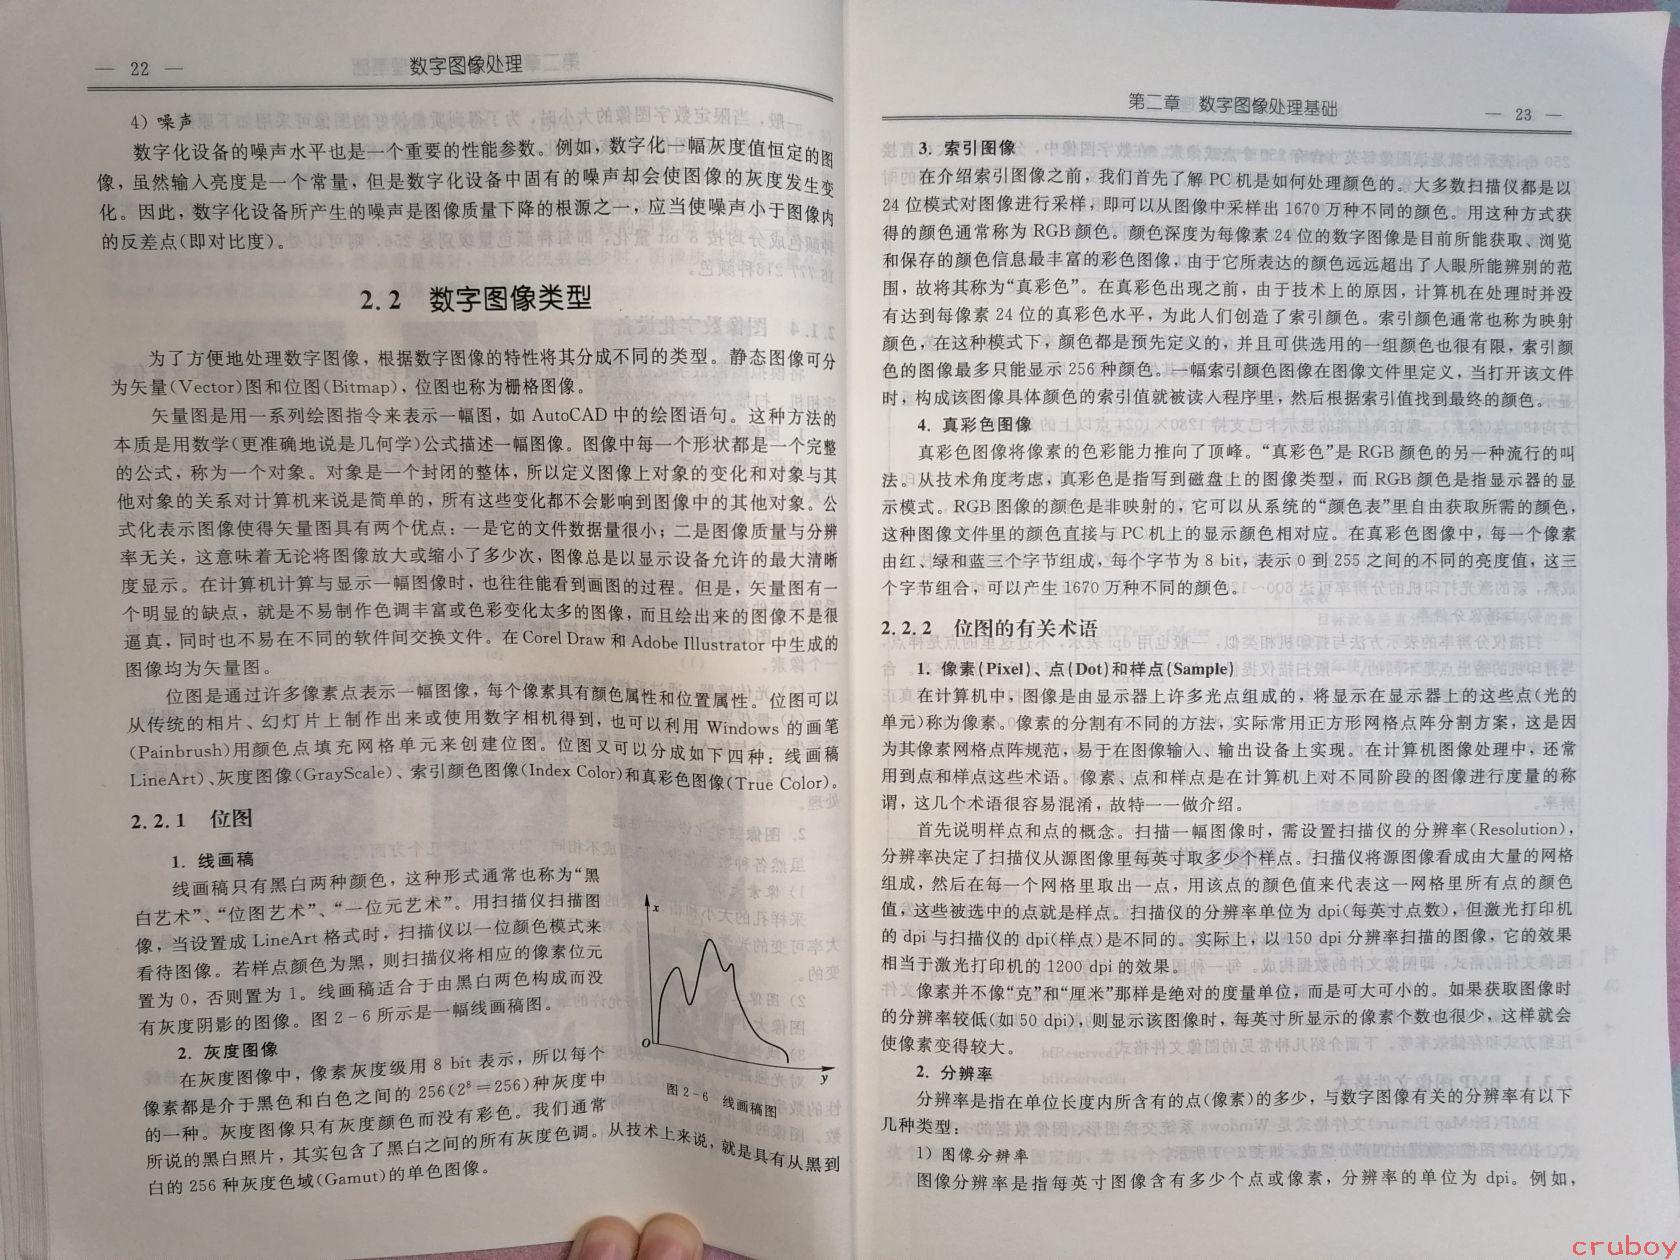 — 22 —
数字图像处理
4) 噪声
数字化设备的噪声水平也是一个重要的性能参数。例如，数字化一幅灰度值恒定的图
像，虽然输入亮度是一个常量，但是数字化设备中固有的噪声却会使图像的灰度发生变
化。因此，数字化设备所产生的噪声是图像质量下降的根源之一，应当使噪声小于图像内
的反差点(即对比度)。
2.2 数字图像类型
为了方便地处理数字图像，根据数字图像的特性将其分成不同的类型。静态图像可分
为矢量(Vector)图和位图(Bitmap)，位图也称为栅格图像。
矢量图是用一系列绘图指令来表示一幅图，如 AutoCAD 中的绘图语句。这种方法的
本质是用数学(更准确地说是几何学)公式描述一幅图像。图像中每一个形状都是一个完整
的公式，称为一个对象。对象是一个封闭的整体，所以定义图像上对象的变化和对象与其
他对象的关系对计算机来说是简单的，所有这些变化都不会影响到图像中的其他对象。公
式化表示图像使得矢量图具有两个优点：一是它的文件数据量很小；二是图像质量与分辨
率无关，这意味着无论将图像放大或缩小了多少次，图像总是以显示设备允许的最大清晰
度显示。在计算机计算与显示一幅图像时，也往往能看到画图的过程。但是，矢量图有一
个明显的缺点，就是不易制作色调丰富或色彩变化太多的图像，而且绘出来的图像不是很
逼真，同时也不易在不同的软件间交换文件。在 Corel Draw 和 Adobe Illustrator 中生成的
图像均为矢量图。
位图是通过许多像素点表示一幅图像，每个像素具有颜色属性和位置属性。位图可以
从传统的相片、幻灯片上制作出来或使用数字相机得到，也可以利用 Windows 的画笔
(Painbrush)用颜色点填充网格单元来创建位图。位图又可以分成如下四种：线画稿
LineArt)、灰度图像(GrayScale)、索引颜色图像(Index Color)和真彩色图像(True Color)。
2.2.1 位图
1. 线画稿
线画稿只有黑白两种颜色，这种形式通常也称为“黑
白艺术”、“位图艺术”、“一位元艺术”。用扫描仪扫描图
像，当设置成 LineArt 格式时，扫描仪以一位颜色模式来
看待图像。若样点颜色为黑，则扫描仪将相应的像素位元
置为 0，否则置为 1。线画稿适合于由黑白两色构成而没
有灰度阴影的图像。图 2-6 所示是一幅线画稿图。
x
O
y
图 2-6 线画稿图
2. 灰度图像
在灰度图像中，像素灰度级用 8 bit 表示，所以每个
像素都是介于黑色和白色之间的 256(2⁸=256)种灰度中
的一种。灰度图像只有灰度颜色而没有彩色。我们通常
所说的黑白照片，其实包含了黑白之间的所有灰度色调。从技术上来说，就是具有从黑到
白的 256 种灰度色域(Gamut)的单色图像。
第二章 数字图像处理基础
— 23 —
3. 索引图像
在介绍索引图像之前，我们首先了解 PC 机是如何处理颜色的。大多数扫描仪都是以
24 位模式对图像进行采样，即可以从图像中采样出 1670 万种不同的颜色。用这种方式获
得的颜色通常称为 RGB 颜色。颜色深度为每像素 24 位的数字图像是目前所能获取、浏览
和保存的颜色信息最丰富的彩色图像，由于它所表达的颜色远远超出了人眼所能辨别的范
围，故将其称为“真彩色”。在真彩色出现之前，由于技术上的原因，计算机在处理时并没
有达到每像素 24 位的真彩色水平，为此人们创造了索引颜色。索引颜色通常也称为映射
颜色，在这种模式下，颜色都是预先定义的，并且可供选用的一组颜色也很有限，索引颜
色的图像最多只能显示 256 种颜色。一幅索引颜色图像在图像文件里定义，当打开该文件
时，构成该图像具体颜色的索引值就被读入程序里，然后根据索引值找到最终的颜色。
4. 真彩色图像
真彩色图像将像素的色彩能力推向了顶峰。“真彩色”是 RGB 颜色的另一种流行的叫
法。从技术角度考虑，真彩色是指写到磁盘上的图像类型，而 RGB 颜色是指显示器的显
示模式。RGB 图像的颜色是非映射的，它可以从系统的“颜色表”里自由获取所需的颜色，
这种图像文件里的颜色直接与 PC 机上的显示颜色相对应。在真彩色图像中，每一个像素
由红、绿和蓝三个字节组成，每个字节为 8 bit，表示 0 到 255 之间的不同的亮度值，这三
个字节组合，可以产生 1670 万种不同的颜色。
2.2.2 位图的有关术语
1. 像素(Pixel)、点(Dot)和样点(Sample)
在计算机中，图像是由显示器上许多光点组成的，将显示在显示器上的这些点(光的
单元)称为像素。像素的分割有不同的方法，实际常用正方形网格点阵分割方案，这是因
为其像素网格点阵规范，易于在图像输入、输出设备上实现。在计算机图像处理中，还常
用到点和样点这些术语。像素、点和样点是在计算机上对不同阶段的图像进行度量的称
谓，这几个术语很容易混淆，故特一一做介绍。
首先说明样点和点的概念。扫描一幅图像时，需设置扫描仪的分辨率(Resolution)，
分辨率决定了扫描仪从源图像里每英寸取多少个样点。扫描仪将源图像看成由大量的网格
组成，然后在每一个网格里取出一点，用该点的颜色值来代表这一网格里所有点的颜色
值，这些被选中的点就是样点。扫描仪的分辨率单位为 dpi(每英寸点数)，但激光打印机
的 dpi 与扫描仪的 dpi(样点)是不同的。实际上，以 150 dpi 分辨率扫描的图像，它的效果
相当于激光打印机的 1200 dpi 的效果。
像素并不像“克”和“厘米”那样是绝对的度量单位，而是可大可小的。如果获取图像时
的分辨率较低(如 50 dpi)，则显示该图像时，每英寸所显示的像素个数也很少，这样就会
使像素变得较大。
2. 分辨率
分辨率是指在单位长度内所含有的点(像素)的多少，与数字图像有关的分辨率有以下
几种类型：
1) 图像分辨率
图像分辨率是指每英寸图像含有多少个点或像素，分辨率的单位为 dpi。例如，
cruboy